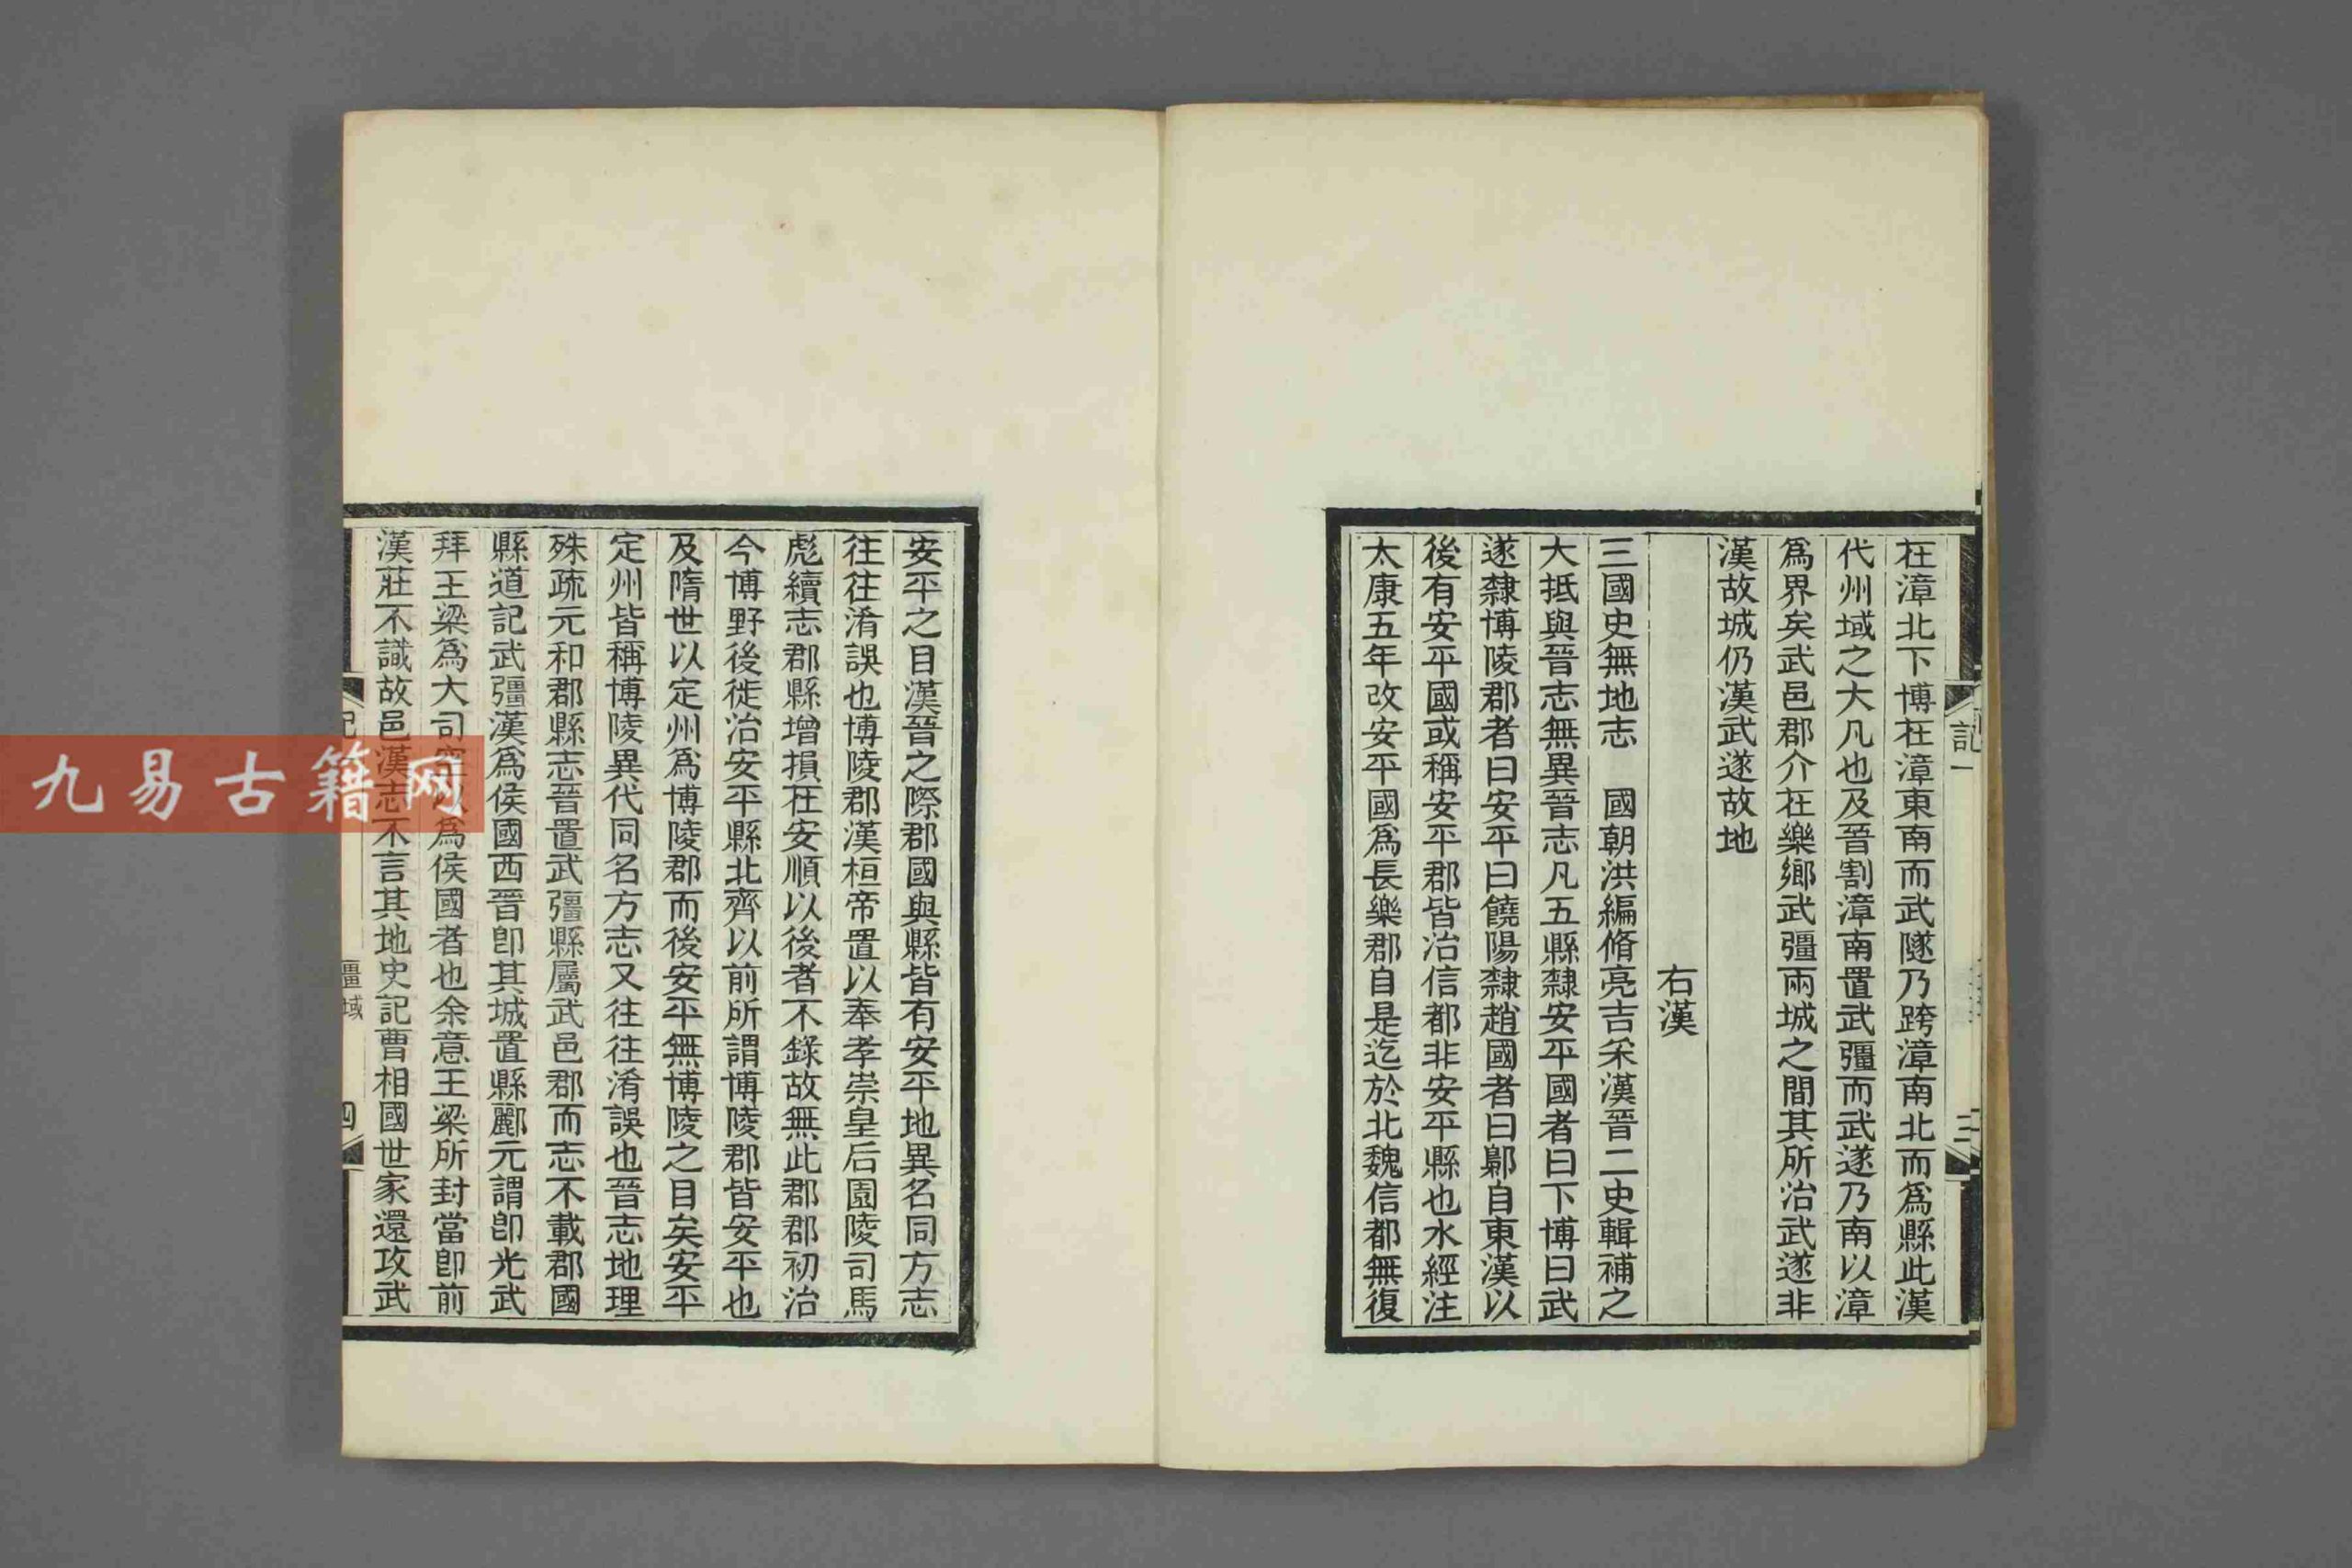 在漳北下博在漳東南而武隧乃跨漳南北而爲縣此漢
代州域之大凡也及晉割漳南置武彊而武遂乃南以漳
爲界矣武邑郡介在樂鄉武彊兩城之間其所治武遂非
漢故城仍漢武遂故地
右漢
三國史無地志　國朝洪編脩亮吉采漢晉二史輯補之
大抵與晉志無異晉志凡五縣隸安平國者曰下博曰武
遂隸博陵郡者曰安平曰饒陽隸趙國者曰鄡自東漢以
後有安平國或稱安平郡皆治信都非安平縣也水經注
太康五年改安平國爲長樂郡自是迄於北魏信都無復
記一
三
安平之目漢晉之際郡國與縣皆有安平地異名同方志
往往淆誤也博陵郡漢桓帝置以奉孝崇皇后園陵司馬
彪續志郡縣增損在安順以後者不錄故無此郡郡初治
今博野後徙治安平縣北齊以前所謂博陵郡皆安平也
及隋世以定州爲博陵郡而後安平無博陵之目矣安平
定州皆稱博陵異代同名方志又往往淆誤也晉志地理
殊疏元和郡縣志晉置武彊縣屬武邑郡而志不載郡國
縣道記武彊漢爲侯國西晉卽其城置縣酈元謂卽光武
拜王梁爲大司空以爲侯國者也余意王梁所封當卽前
漢莊不識故邑漢志不言其地史記曹相國世家還攻武
記
疆域
四
九易古籍网